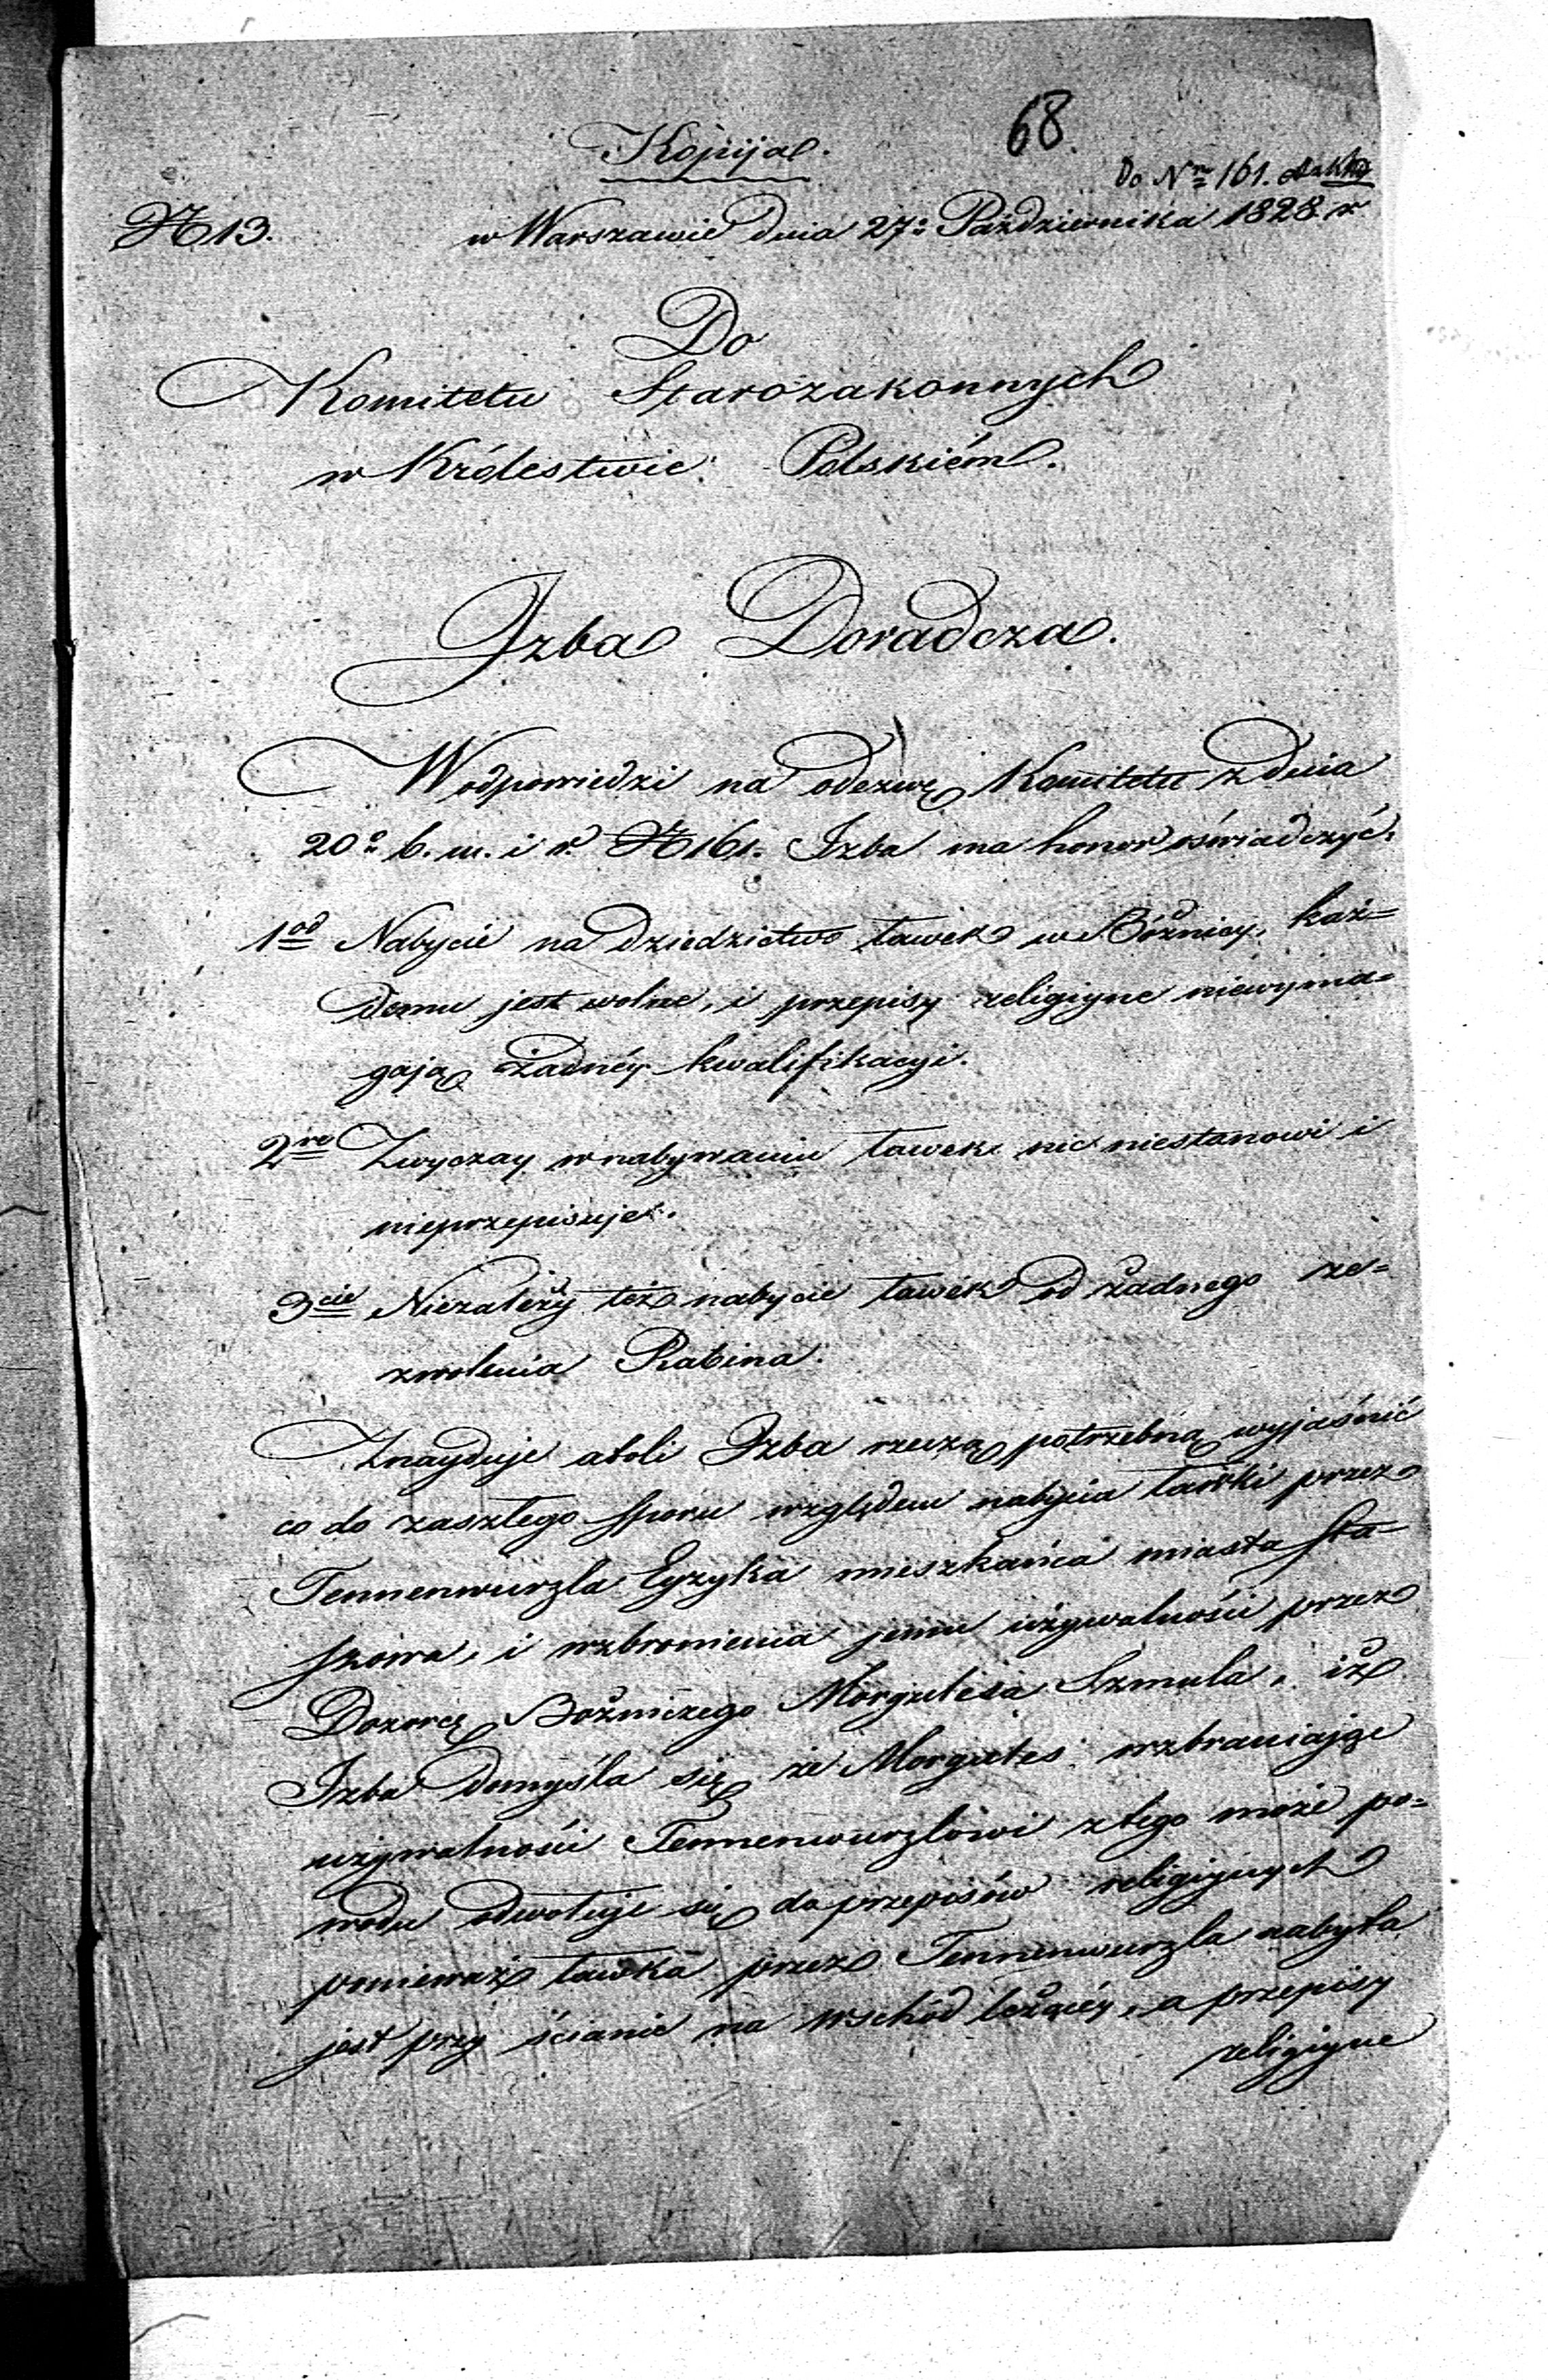 68.
Kopija.
Do Nru 161.
N 13. w Warszawie dnia 27o Października 1828. r
Do
Komitetu Starozakonnych
w Królestwie Polskiém.
Izba Doradcza.
W odpowiedzi na odezwę Komitetu z dnia
20o b. m. i r. N 161. Izba ma honor oświadczyć:
1od Nabycie na dziedzictwo ławek w Bóżnicy, każ=
demu jest wolne, i przepisy religiyne niewyma=
gają żadnéy kwalifikacyi.
2re Zwyczay w nabywaniu ławek nic niestanowi i
nieprzepisuje.
3cie Niezależy też nabycie ławek od żadnego ze=
zwolenia Rabina.
Znayduje atoli Izba rzeczą potrzebną wyjaśnić
co do zaszłego sporu względem nabycia ławki przez
Tennenwurzla Eyzyka mieszkańca miasta Sta-
szowa, i wzbronienia jemu używalności przez
Dozorcę Bóżniczego Morgulesa Szmula, iż
Izba domyśla się że Morgules wzbraniając
używalności Tennenwurzlowi z tego może po=
wodu odwołuje się do przepisów religiynych
ponieważ ławka przez Tennenwurzla nabyta
jest przy ścianie na wschód leżącéy, a przepisy
religiyne